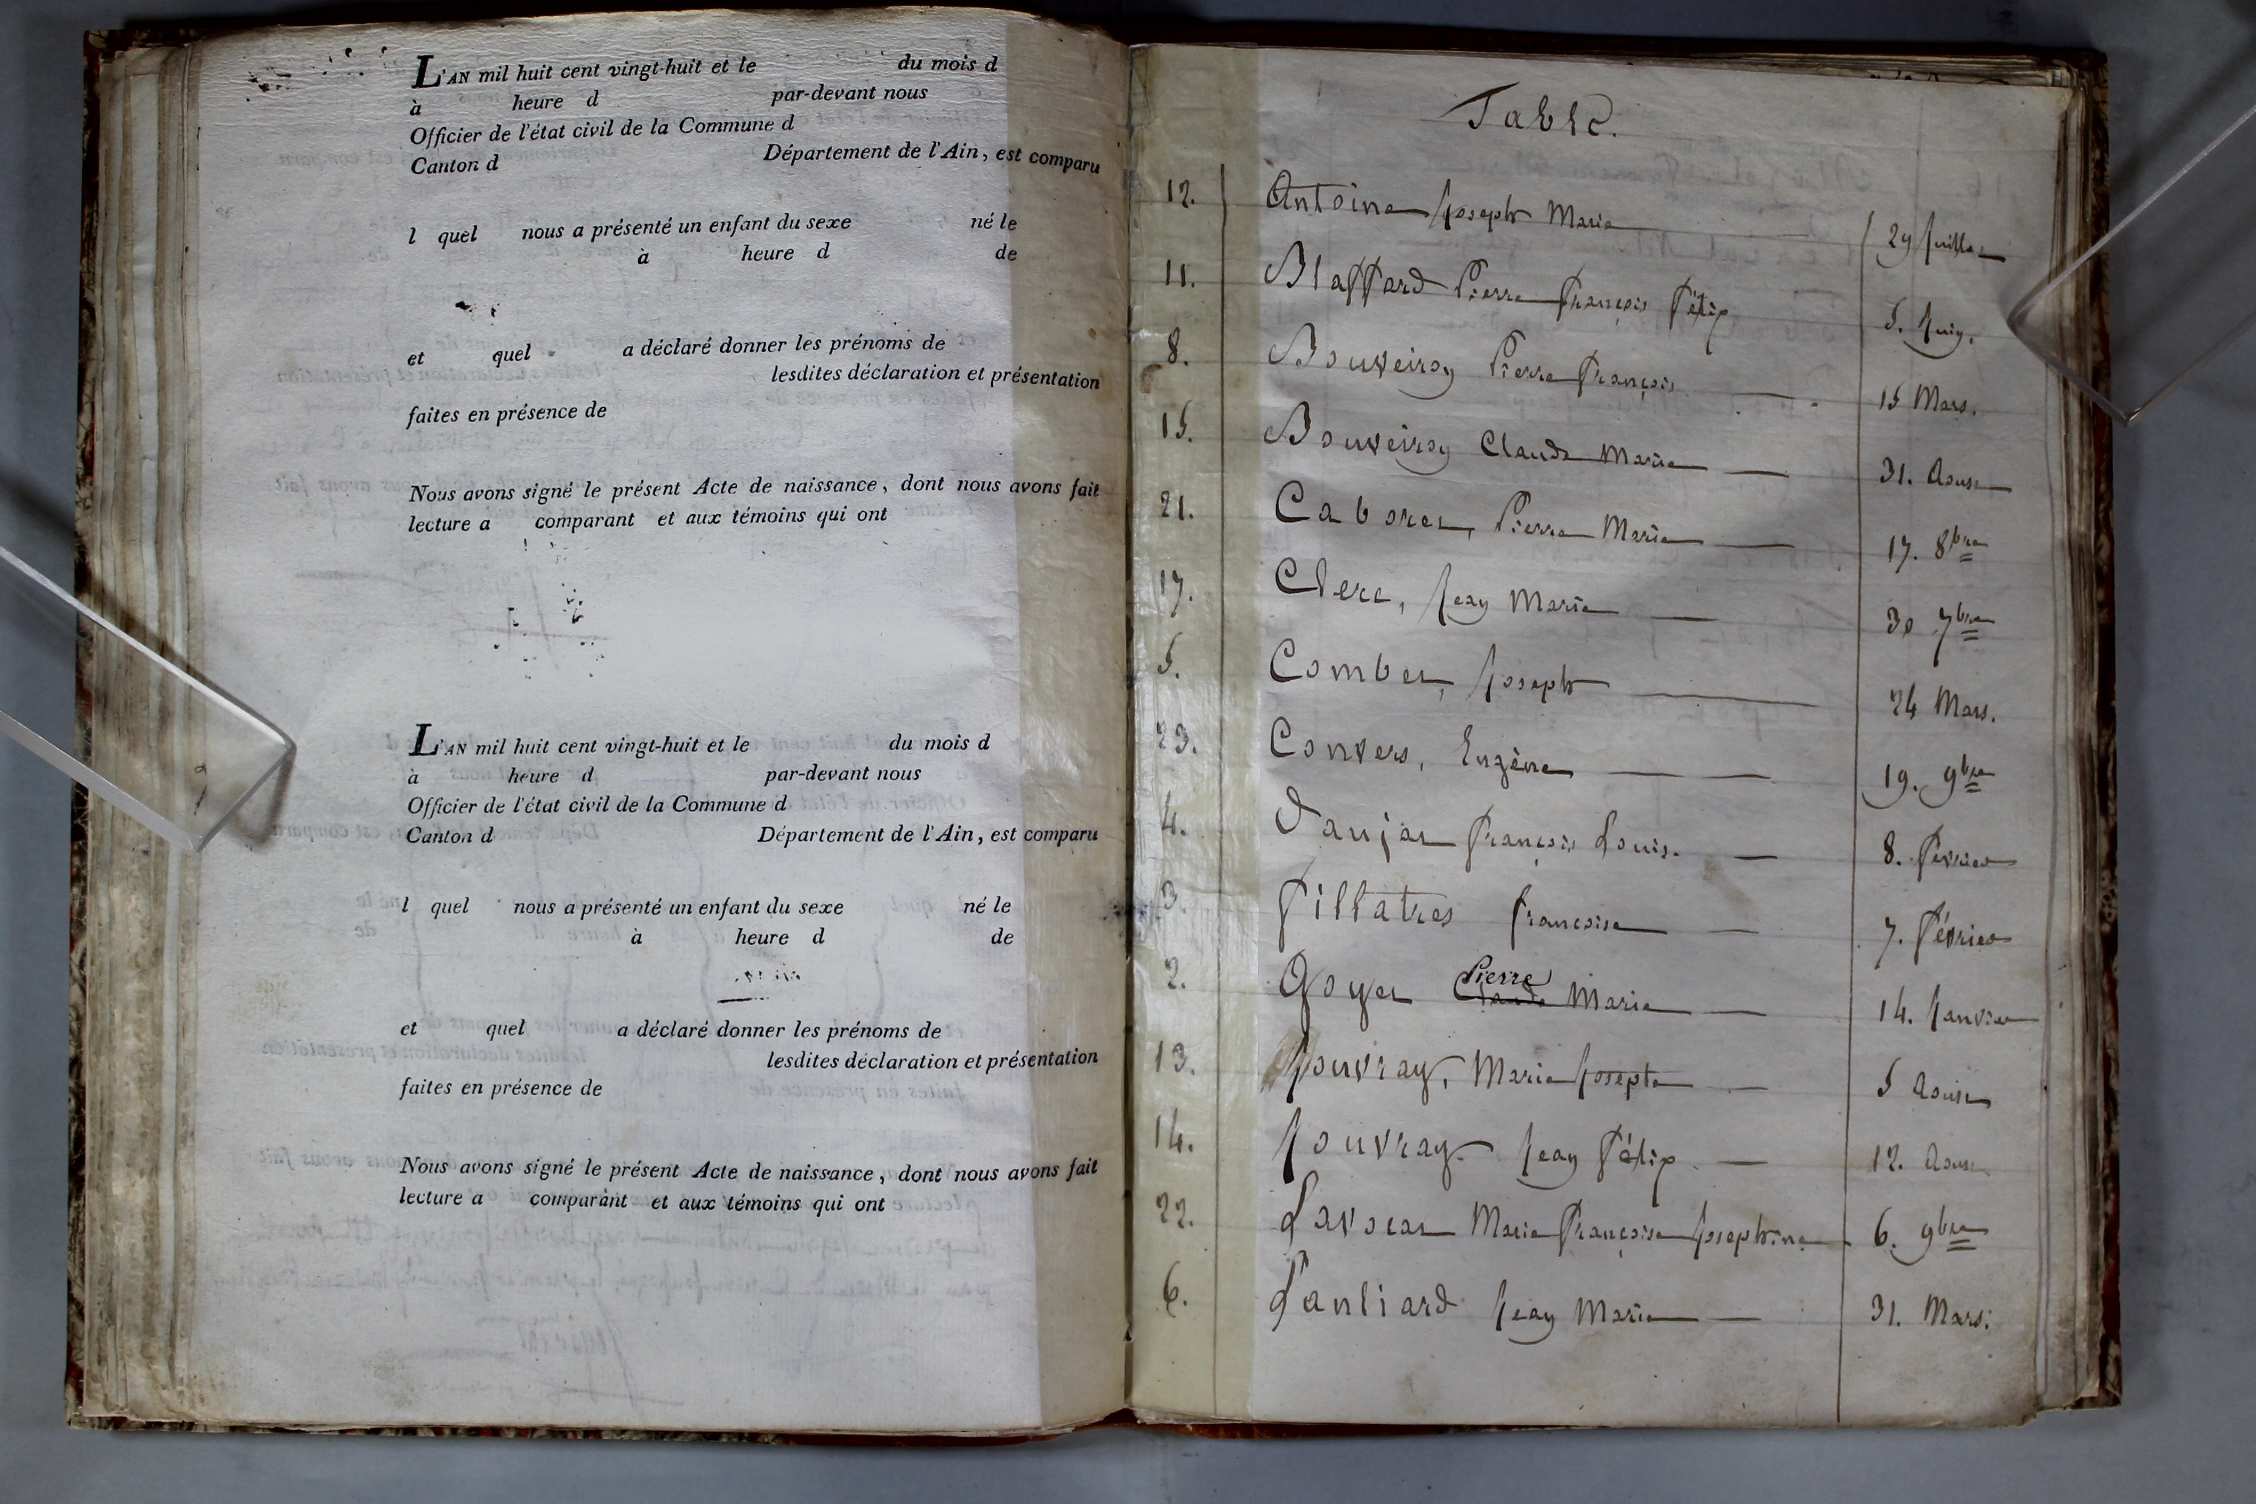 L'AN mil huit cent vingt-huit et le du mois d
à heure d par-devant nous
Officier de l'état civil de la Commune d
Canton d Département de l'Ain, est comparu
l quel nous a présenté un enfant du sexe né le
à heure d de
et quel a déclaré donner les prénoms de
lesdites déclaration et présentation
faites en présence de
Nous avons signé le présent Acte de naissance, dont nous avons fait
lecture a comparant et aux témoins qui ont
L'AN mil huit cent vingt-huit et le du mois d
à heure d par-devant nous
Officier de l'état civil de la Commune d
Canton d Département de l'Ain, est comparu
l quel nous a présenté un enfant du sexe né le
à heure d de
et quel a déclaré donner les prénoms de
lesdites déclaration et présentation
faites en présence de
Nous avons signé le présent Acte de naissance, dont nous avons fait
lecture a comparant et aux témoins qui ont
Table.
12. Antoine Joseph Marie 29 Juillet
11. Blaffard Pierre François Félix 5. Juin.
8. Bouveiron Pierre François 15 Mars.
15. Bouveiron Claude Marie 31. Aoust
21. Caboret, Pierre Marie 17. 8bre
17. Clerc, Jean Marie 30 7bre
5. Combet, Joseph 24 Mars.
23. Convers, Eugène 19. 9bre
4. Danjat François Louis. 8. Février
3. Fillatres françoise 7. Février
2. Goyet Claude Pierre Marie 14. Janvier
13. Jouvray, Marie Josepte 5 Aoust
14. Jouvray Jean Félix 12. Aoust
22. Lavocat Marie Françoise Josephine 6. 9bre
6. Lanliard Jean Marie 31. Mars.